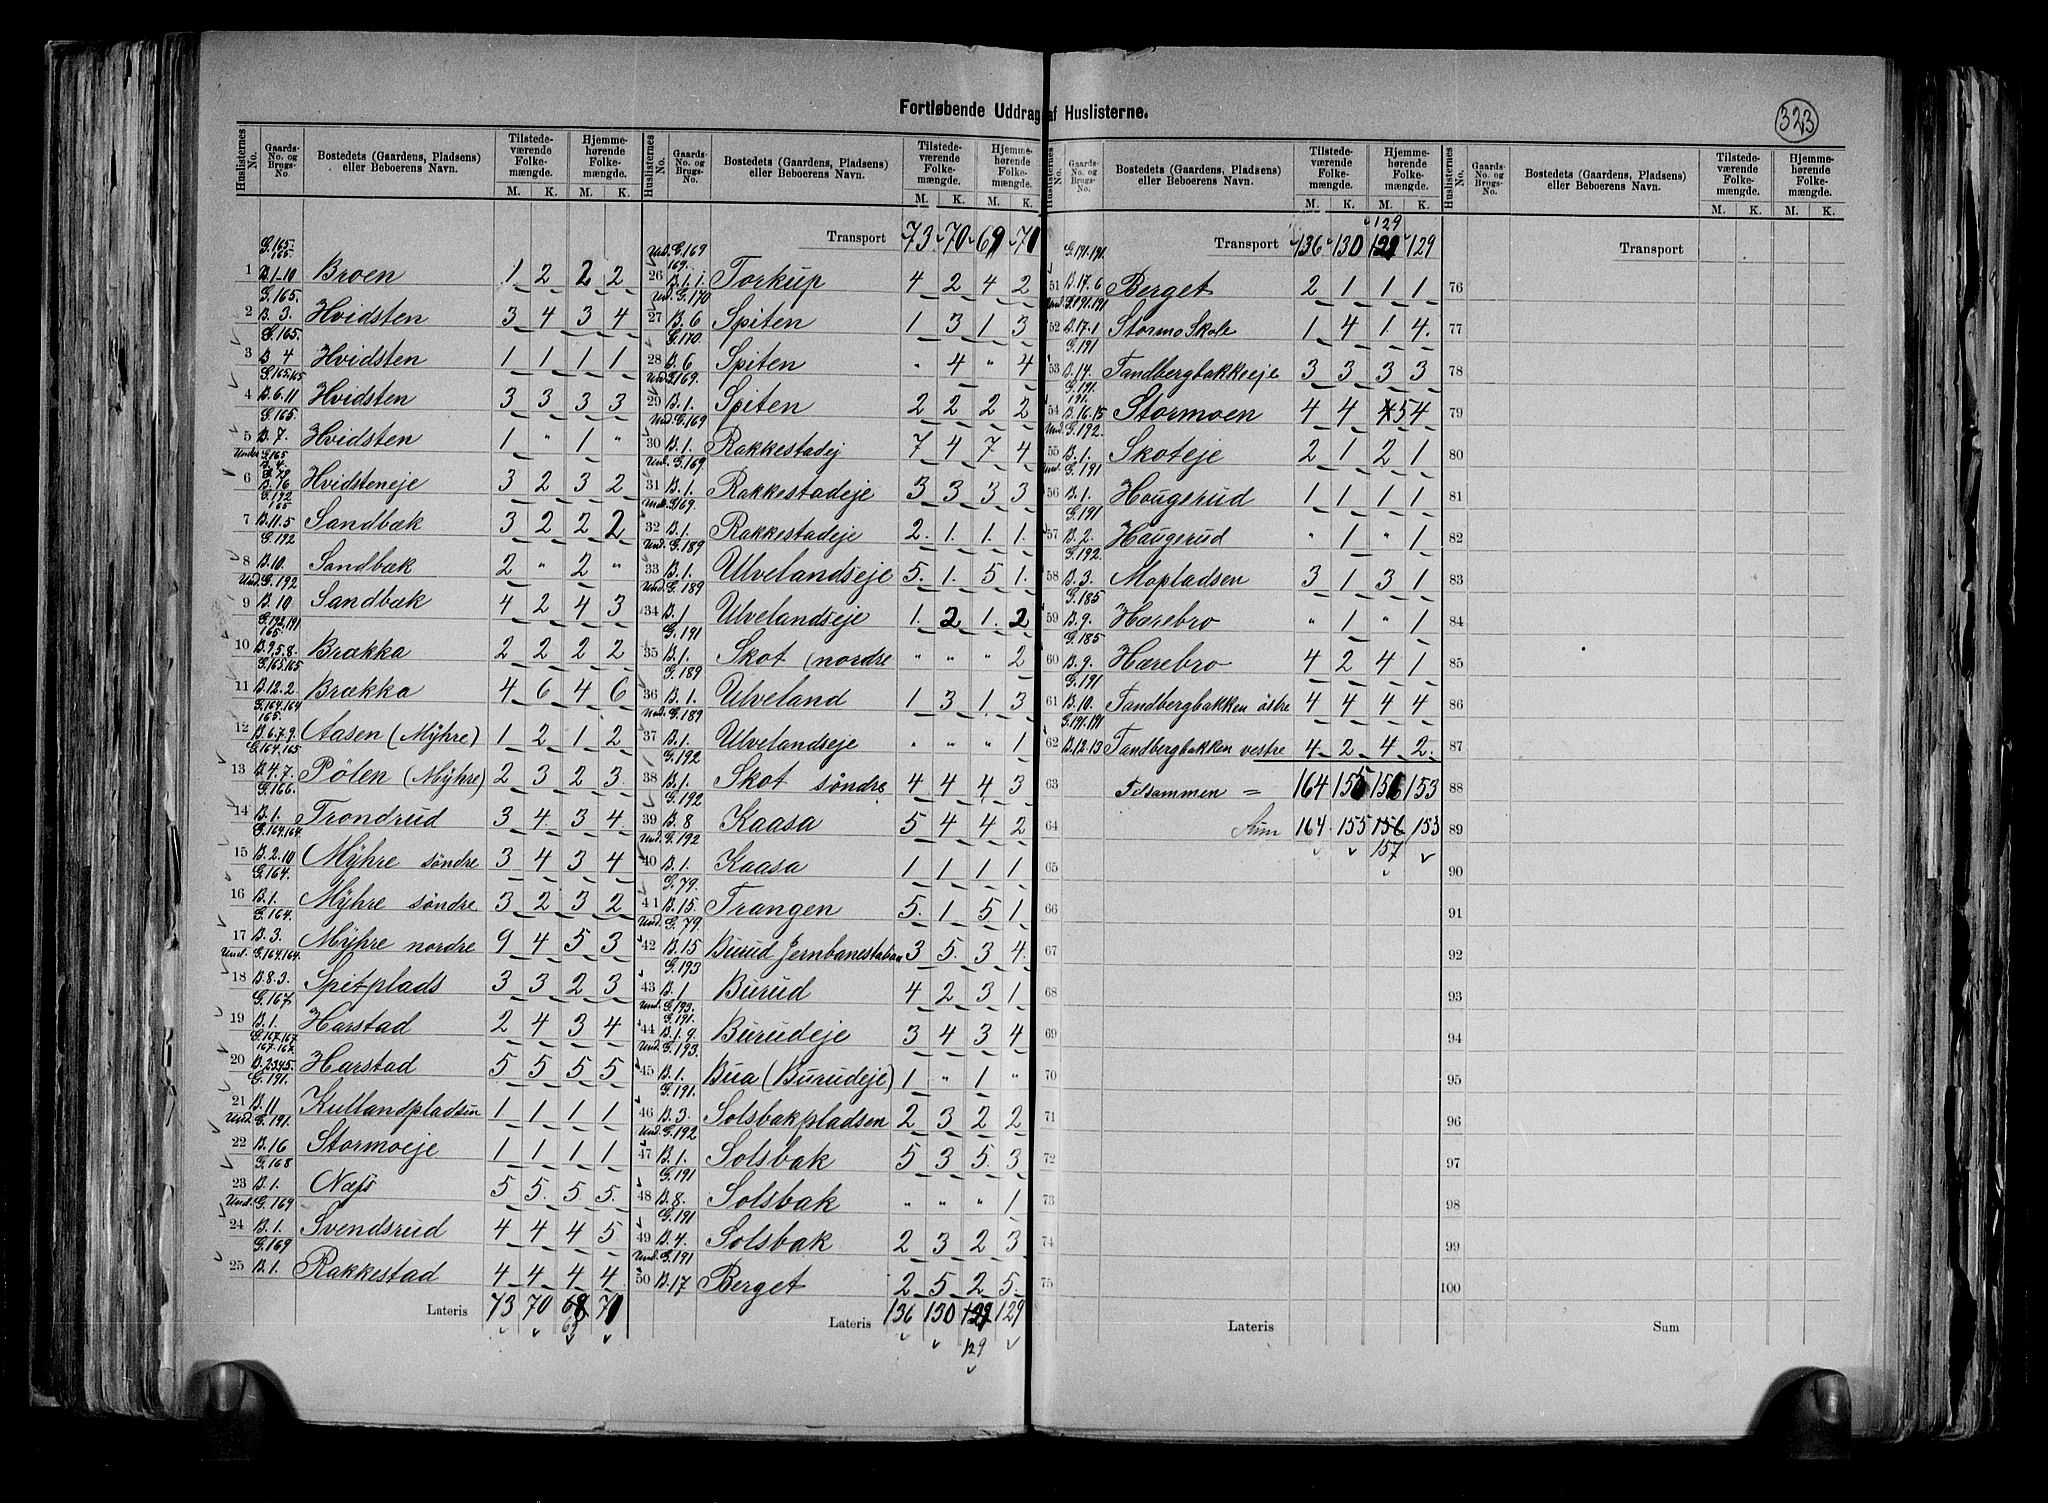 Fortløbende Uddrag af Huslisterne.
323
Huslisternes No. Gaards-No. og Brugs-No. Bostedets (Gaardens, Pladsens) eller Beboerens Navn. Tilstedeværende Folkemængde. M. K. Hjemmehørende Folkemængde. M. K.
G.165. 165.
1 B.1-10 Broen 1 2 2 2
G.165.
2 B. 3. Hvidsten 3 4 3 4
G.165.
3 B 4 Hvidsten 1 1 1 1
G.165.165
4 B.6.11 Hvidsten 3 3 3 3
G.165
5 B.7. Hvidsten 1 " 1 "
Under G.165 B.4.
6 Hvidsteneje 3 2 3 2
G.192 165
7 B.11.5 Sandbæk 3 2 2 2
G.192
8 B.10. Sandbæk 2 " 2 "
Und. G.192
9 B.10. Sandbæk 4 2 4 3
G.192.191 165.
10 B.9.5.8. Brækka 2 2 2 2
G.165.165
11 B.12.2. Brækka 4 6 4 6
G.164.164 165.
12 B.6.7.9. Aasen (Mÿhre) 1 2 1 2
G.164.165
13 B.4.7. Pölen (Mÿhre) 2 3 2 3
G.166.
14 B.1. Trondrud 3 4 3 4
G.164.164.
15 B.2.10 Mÿhre söndre 3 4 3 4
G.164.
16 B.1. Mÿhre söndre 3 2 3 2
G.164.
17 B.3. Mÿhre nordre 9 4 5 3
Und. G.164.164.
18 B.8.3. Spitplads 3 3 2 3
G.167.
19 B.1. Harstad 2 4 3 4
G.167.167. 167.167.
20 B.2345. Harstad 5 5 5 5
G.191.
21 B.11 Kullandpladsen 1 1 1 1
Und. G.191.
22 B.16 Stormoeje 1 1 1 1
G.168
23 B.1. Næss 5 5 5 5
Und. G.169
24 B.1. Svendsrud 4 4 4 5
G.169
25 B.1. Rakkestad 4 4 4 4
Lateris 73 70 71
Huslisternes No. Gaards-No. og Brugs-No. Bostedets (Gaardens, Pladsens) eller Beboerens Navn. Tilstedeværende Folkemængde. M. K. Hjemmehørende Folkemængde. M. K.
Transport 73 70 69 71
Und. G.169 169.
26 B.1.1. Torkup 4 2 4 2
Und. G.170
27 B.6 Spiten 1 3 1 3
G.170.
28 B.6 Spiten " 4 " 4
Und. G.169.
29 B.1. Spiten 2 2 2 2
Und. G.169
30 B.1. Rakkestadej 7 4 7 4
Und. G.169
31 B.1. Rakkestadeje 3 3 3 3
Und. G.169.
32 B.1. Rakkestadeje 2 1 1 1
Und. G.189
33 B.1. Ulvelandseje 5 1 5 1
Und. G.189
34 B.1 Ulvelandseje 1 2 1 2
G.191
35 B.1. Skot (nordre " " " 2
G.189
36 B.1. Ulveland 1 3 1 3
Und. G.189
37 B.1. Ulvelandseje " " " 1
G.192
38 B.1. Skot söndre 4 4 4 3
G.192
39 B.8 Kaasa 5 4 4 2
Und. G.192
40 B.1. Kaasa 1 1 1 1
G.79.
41 B.15. Trangen 5 1 5 1
Und. G.79.
42 B.15 Burud Jernbanestation 3 5 3 4
G.193
43 B.1 Burud 4 2 3 1
Und. G.193. G.191.
44 B.1.9. Burudeje 3 4 3 4
Und. G.193.
45 B.1. Bua (Burudeje) 1 " 1 "
G.191.
46 B.3. Solsbakpladsen 2 3 2 2
Und. G.192
47 B.1. Solsbak 5 3 5 3
G.191
48 B.8. Solsbak " " " 1
G.191
49 B.4. Solsbak 2 3 2 3
Und. G.191
50 B.17 Berget 2 5 2 5
Lateris 136 130 129
129
Huslisternes No. Gaards-No. og Brugs-No. Bostedets (Gaardens, Pladsens) eller Beboerens Navn. Tilstedeværende Folkemængde. M. K. Hjemmehørende Folkemængde. M. K.
129
Transport 136 130 129
G.191.191.
51 B.17.6 Berget 2 1 1 1
Und. G.191.191
52 B.17.1 Stormo Skole 1 4 1 4
G.191
53 B.14. Tandbergbakkeeje 3 3 3 3
G.191. 191.
54 B.16.15 Stormoen 4 4 5 4
Und. G.192.
55 B.1. Skoteje 2 1 2 1
Und. G.191
56 B.1. Hougerud 1 1 1 1
G.191
57 B.2. Haugerud " 1 " 1
G.192.
58 B.3. Mopladsen 3 1 3 1
G.185
59 B.9. Hærebro " 1 " 1
G.185
60 B.9. Hærebro 4 2 4 1
G.191
61 B.10. Tandbergbakken östre 4 4 4 4
G.191.191
62 B.12.13 Tandbergbakken vestre 4 2 4 2
63 Tilsammen = 164 155 156 153
64 Sum 164 155 156 153
157
65
66
67
68
69
70
71
72
73
74
75
Lateris
Huslisternes No. Gaards-No. og Brugs-No. Bostedets (Gaardens, Pladsens) eller Beboerens Navn. Tilstedeværende Folkemængde. M. K. Hjemmehørende Folkemængde. M. K.
Transport
76
77
78
79
80
81
82
83
84
85
86
87
88
89
90
91
92
93
94
95
96
97
98
99
100
Sum